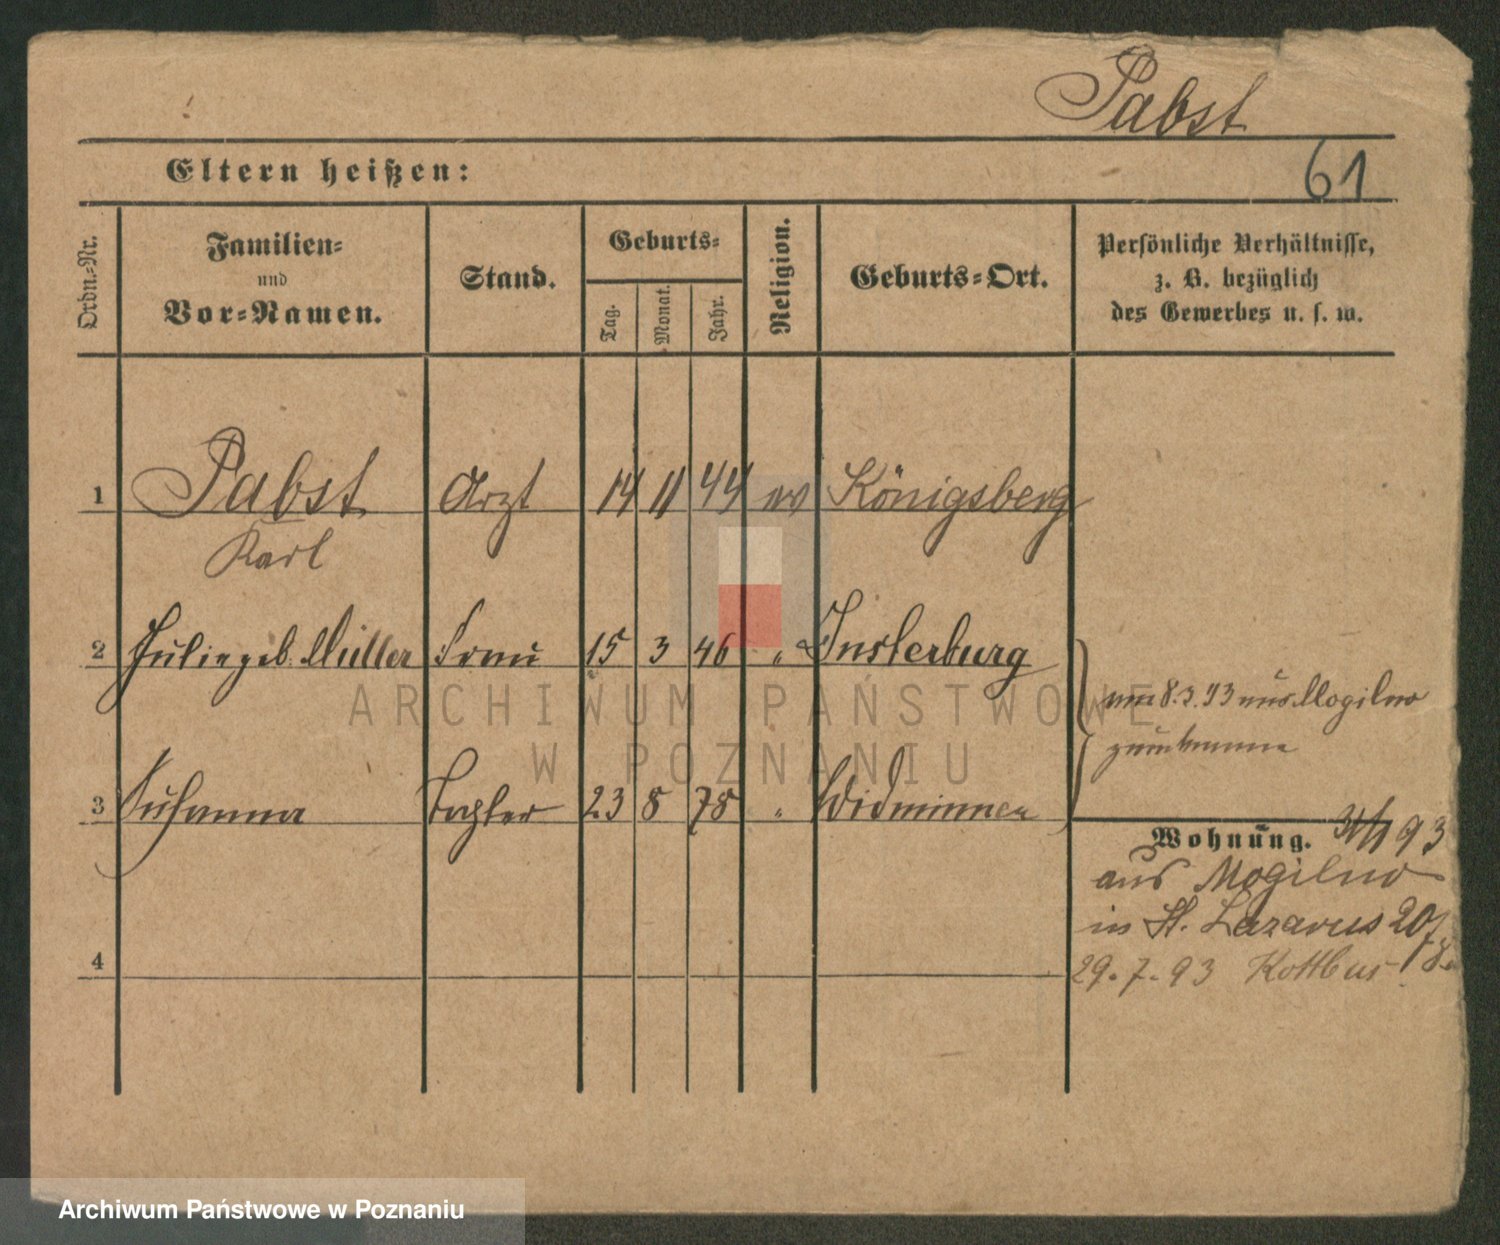 Pabst
Eltern heißen:
61
Ordn.-Nr.
Familien-
und
Vor-Namen.
Stand.
Geburts-
Tag.
Monat.
Jahr.
Religion.
Geburts-Ort.
Persönliche Verhältnisse,
z. B. bezüglich
des Gewerbes u. s. w.
1 Pabst Arzt 14 11 44 ev Königsberg
Karl
2 Julie geb. Müller Frau 15 3 46 " Insterburg
am 8.3.93 aus Mogilno
ARCHIWUM PAŃSTWOWE
W POZNANIU
3 Susanna Tochter 23 8 78 " Widminnen
Wohnung. 93
aus Mogilno
in St. Lazarus 20
4
29.7.93 Kottbus
Archiwum Państwowe w Poznaniu